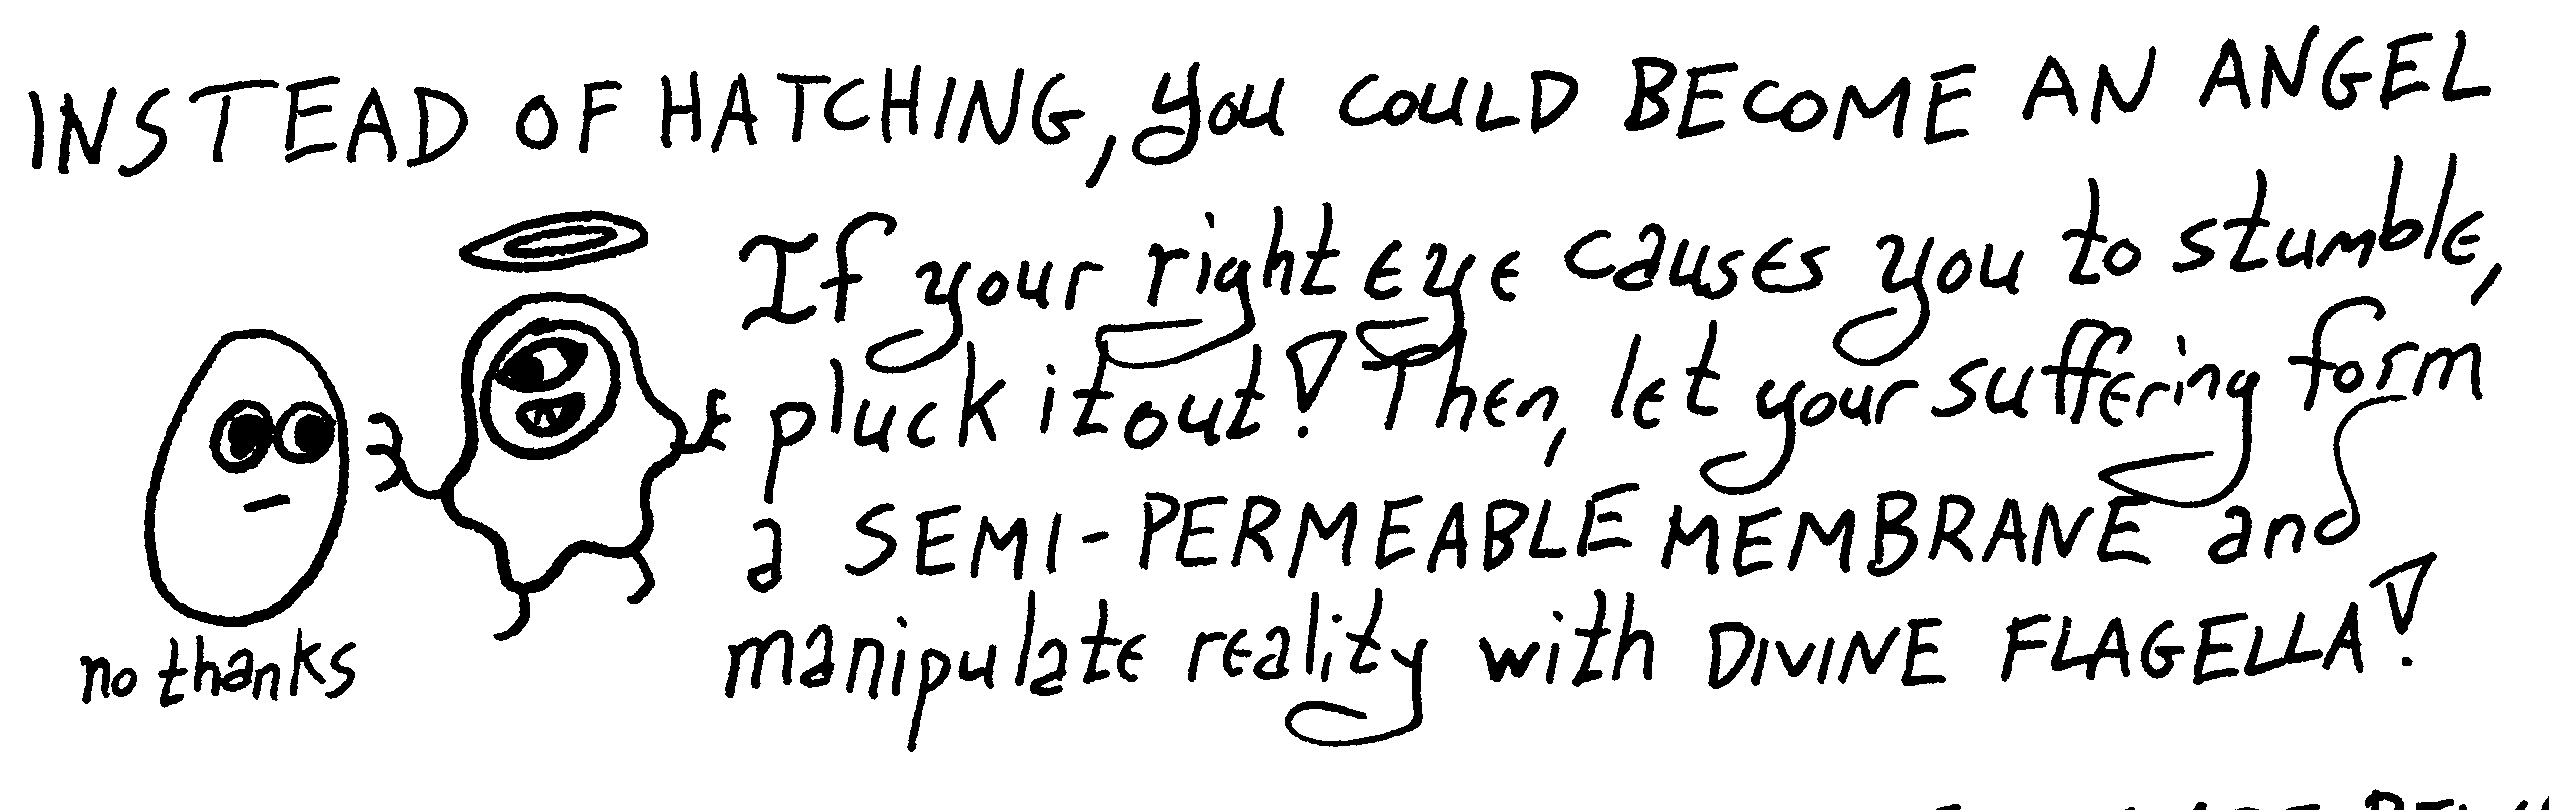 INSTEAD OF HATCHING, you COULD BECOME AN ANGEL
If your right eye causes you to stumble,
pluck it out! Then, let your suffering form
a SEMI-PERMEABLE MEMBRANE and
manipulate reality with DIVINE FLAGELLA!
no thanks